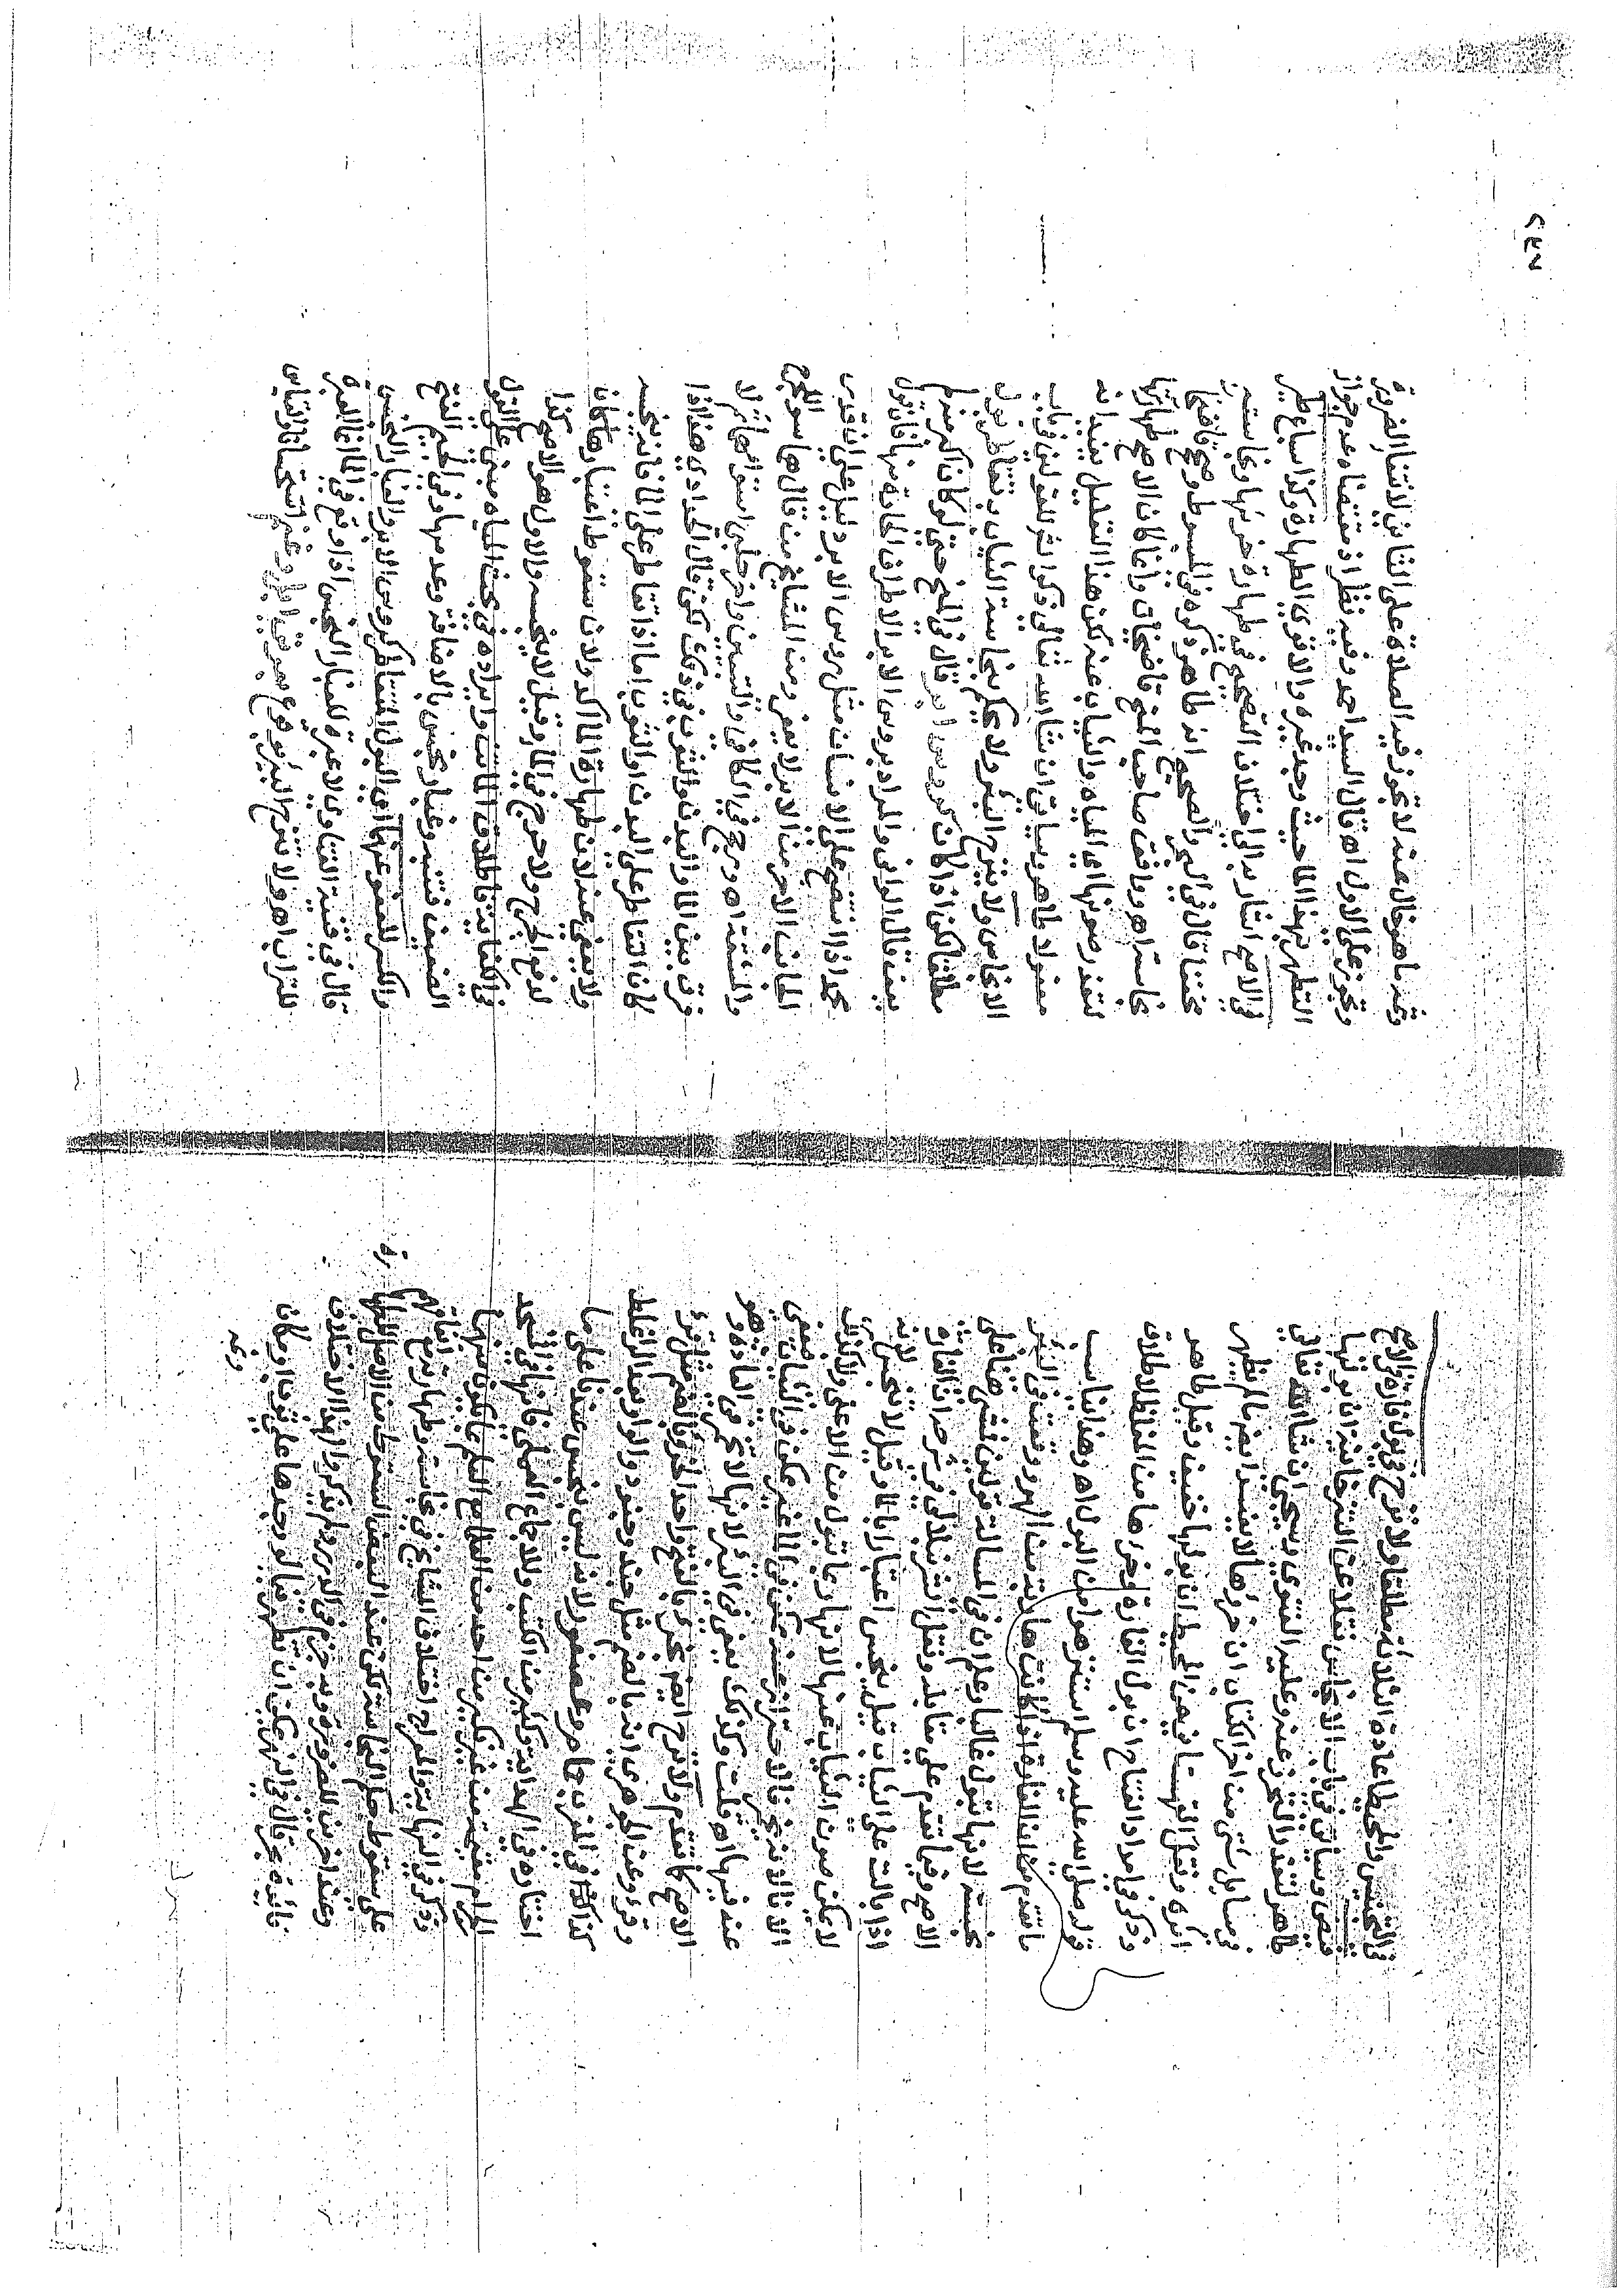 في التجنيس والمحيط اعادة الثلاثة مطلقا ولا نزح في بول فارة في الاصح
فيض وسياتي في باب الانجاس نقلا عن التترخانية ان بولها
طاهر لتعذر التحرز عنه وعليه الفتوى وسيجي ان شا الله تعالى
في مسايل شتى من اخر الكتاب ان خرؤها لا يفسد ايضا ما لم يظهر
اثره ونقل القهستاني عن المحيط ان بولها خفيف وقيل طاهر
وذكر في امداد الفتاح ان بول الفارة وخرؤها من المغلظ لاطلاق
قوله صلى الله عليه وسلم استنزهوا من البول اه وهذا يناسب
ما تقدم من ان الفارة اذا كانت هاربة من الهر ووقعت في البئر
تنجسه لانها تبول غالبا وعلم ان في المسالة قولين مشى هنا على
الاصح وفيما تقدم على مقابله ونقل الشرنبلالي الفارة لانه
اذا بالت على الثياب قيل ينجس اعتبارا بالماء وقيل لا تنجس
لا يمكن صون الثياب عنها لانها ربما تبول من الاعلى ولا كذلك
الاناء لانه يخمر فالاحتراز عنه ممكن في الماء غير ممكن في الثياب فيعفى
عنه فيها اه قلت وكذلك يعفى في البئر لانها لا تخمر في العادة وهو
الاصح كما تقدم ولا نزح ايضا بخرء بالفتح واحد الخروء بالضم مثل قرء
وقروء وعن الجوهري انه بالضم مثل جند وجنود والواو بعد الراء غلط
كذا في المغرب حمام وعصفور لانه ليس بنجس عندنا على ما
اختاره في الهداية وكثير من الكتب وللاجماع العملي فانها في المسجد
الحرام مقيمة من غير نكير من احد من العلماء مع العلم بما يكون منها
وذكر في النهاية والمعراج اختلاف المشايخ في نجاسته وطهارته مع اتفاقهم
على سقوط حكم النجاسة لكن عند البعض السقوط من الاصل للطهارة
وعند اخرين للضرورة وبه جزم في الدرر ولم يذكروا لهذا الاختلاف
فائدة بحر قال في النهر يمكن ان تظهر فيما لو وجدها على ثوب او مكان
وثمه
٢٤٧
وثمه ما هو خال عنه لا تجوز فيه الصلاة على الثاني لانتفا الضرورة
وتجوز على الاول اه قال السيد احمد وفيه نظر اذ مقتضاه عدم جواز
التطهر بهذا الما حيث وجد غيره والاقوى الطهارة وكذا سباع طير
في الاصح اشار به الى اختلاف التصحيح في طهارة خرئها ونجاسته
عندنا قال في البحر والصحيح انه طاهر ذكره في المبسوط وصحح قاضيخان
نجاسته اه ووافق صاحب المنح قاضيخان وانما كان الاصح طهارتها
لتعذر صونها اي المياه والثياب عنه لكن هذا التعليل يفيد انه
معفو لا طاهر وسياتي ان شا الله تعالى ذكر للقولين في باب
الانجاس ولا ينزح البئر ولا يحكم بنجاسة الثياب بتقاطر بول
مطلقا لكن اذا كان كروس ابر قال في المنح حتى لو كان اكثر منع
قال الوافي والمراد بروس الابر الاطراف الحادة منها فان بول
محمد اذا انتضح على الانسان مثل روس الابر دليل على ان قدر
الجانب الاخر من الابر لا يعفى ومن المشايخ من قال هما سوا للحرج
والمشقة اه ورجح في الكافي والتبيين
فرق بين الما والبدن والثوب في ذلك لكن قال الحدادي هذا اذا
كان التقاطر على البدن او الثوب اما اذا تقاطر على الما فانه ينجسه
ولا يعفى عنه لان طهارة الما اكد ولان سقوط اعتبارها كان
لدفع الحرج ولا حرج في الما وقيل لا ينجسه والاول هو الاصح كذا
في الكفاية فاطلاق الماتن وايراده في بحث المياه مبني على القول
الضعيف فتنبه وغبار نجس بالاضافة وعدمها وفي الجيم الفتح
والكسر للعفو عنهما اي البول المتقاطر كروس الابر والغبار النجس
قال في قنية الفتاوى لا عبرة للغبار النجس اذا وقع في الما انما العبرة
للتراب اه ولا تنزح البئر بوقوع